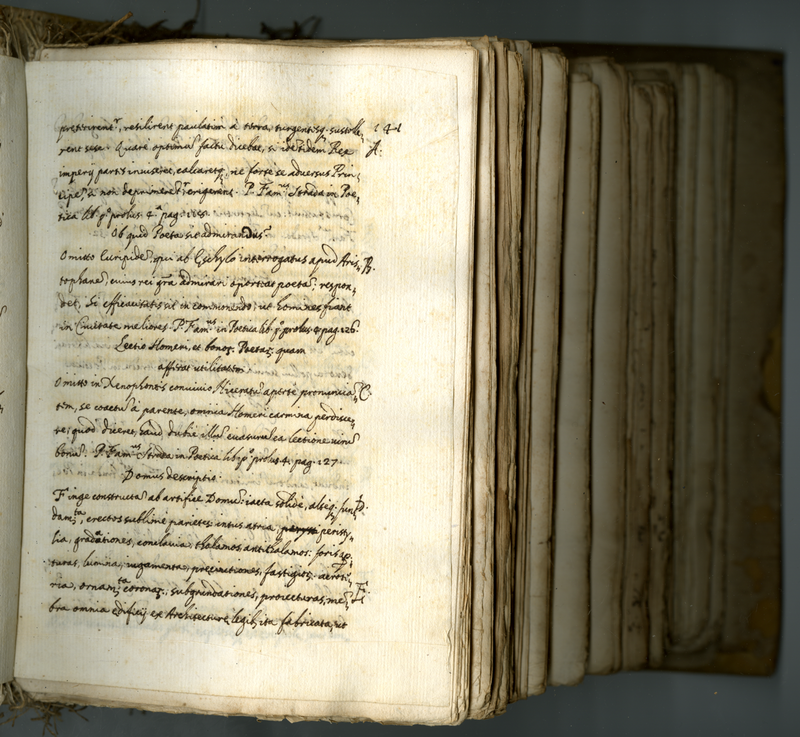 preterirent^r, resilirent paulatim à terra, turgentisq. sustolle, 141
rent sese. Quare optimũ factũ dicebat, si idẽtidem Rex A.
imperij partes inuiseret, calcaretq. ne forte se aduersus Prin,
cipẽ, à non deprimeret^r erigerent. P. Fam^us Strada in Poe,
tica lib. p.º prolus. 4.ª pag.
Ob quid Poeta sit admirandus.
Omitto Euripidẽ, qui ab Eschylo interrogatus apud Aris, B.
tophanẽ, cuius rei grã admirari oporteat poetã; respon,
det, si efficacitatis sit in commonendo, ut homines fiant
in Ciuitate meliores. P. Fam^us in Poetica lib. p.º prolus. 4. pag. 126.
Lectio Homeri, et bonoꝝ. Poetaꝝ, quam
afferat utilitatem.
Omitto in Xenophontis conuiuio, Niceratũ apertè pronuncia, C.
tem, se coactũ à parente, omnia Homeri carmina perdisce,
re; quod diceret, haud dubiè illũ euasurũ ea lectione uirũ
bonũ. P. Fam^us Strada in Poetica lib. p.º prolus. 4. pag. 127
Domus descriptio.
Finge constructã ab artifice Domũ: iacta solidè, altèq. fun, D.
dam^ta, erectos sublimè parietes: intus atria, peristy,
lia, gradationes, conclauia, thalamos antithalamos: foris ap,
turas, lumina, iugamenta, precinctiones, fastigios. acroti,
ria, ornam^ta coronaꝝ, subgrundationes, proiecturas, mẽ, E.
bra omnia edificij ex Architecturę legib, ita fabricata, ut